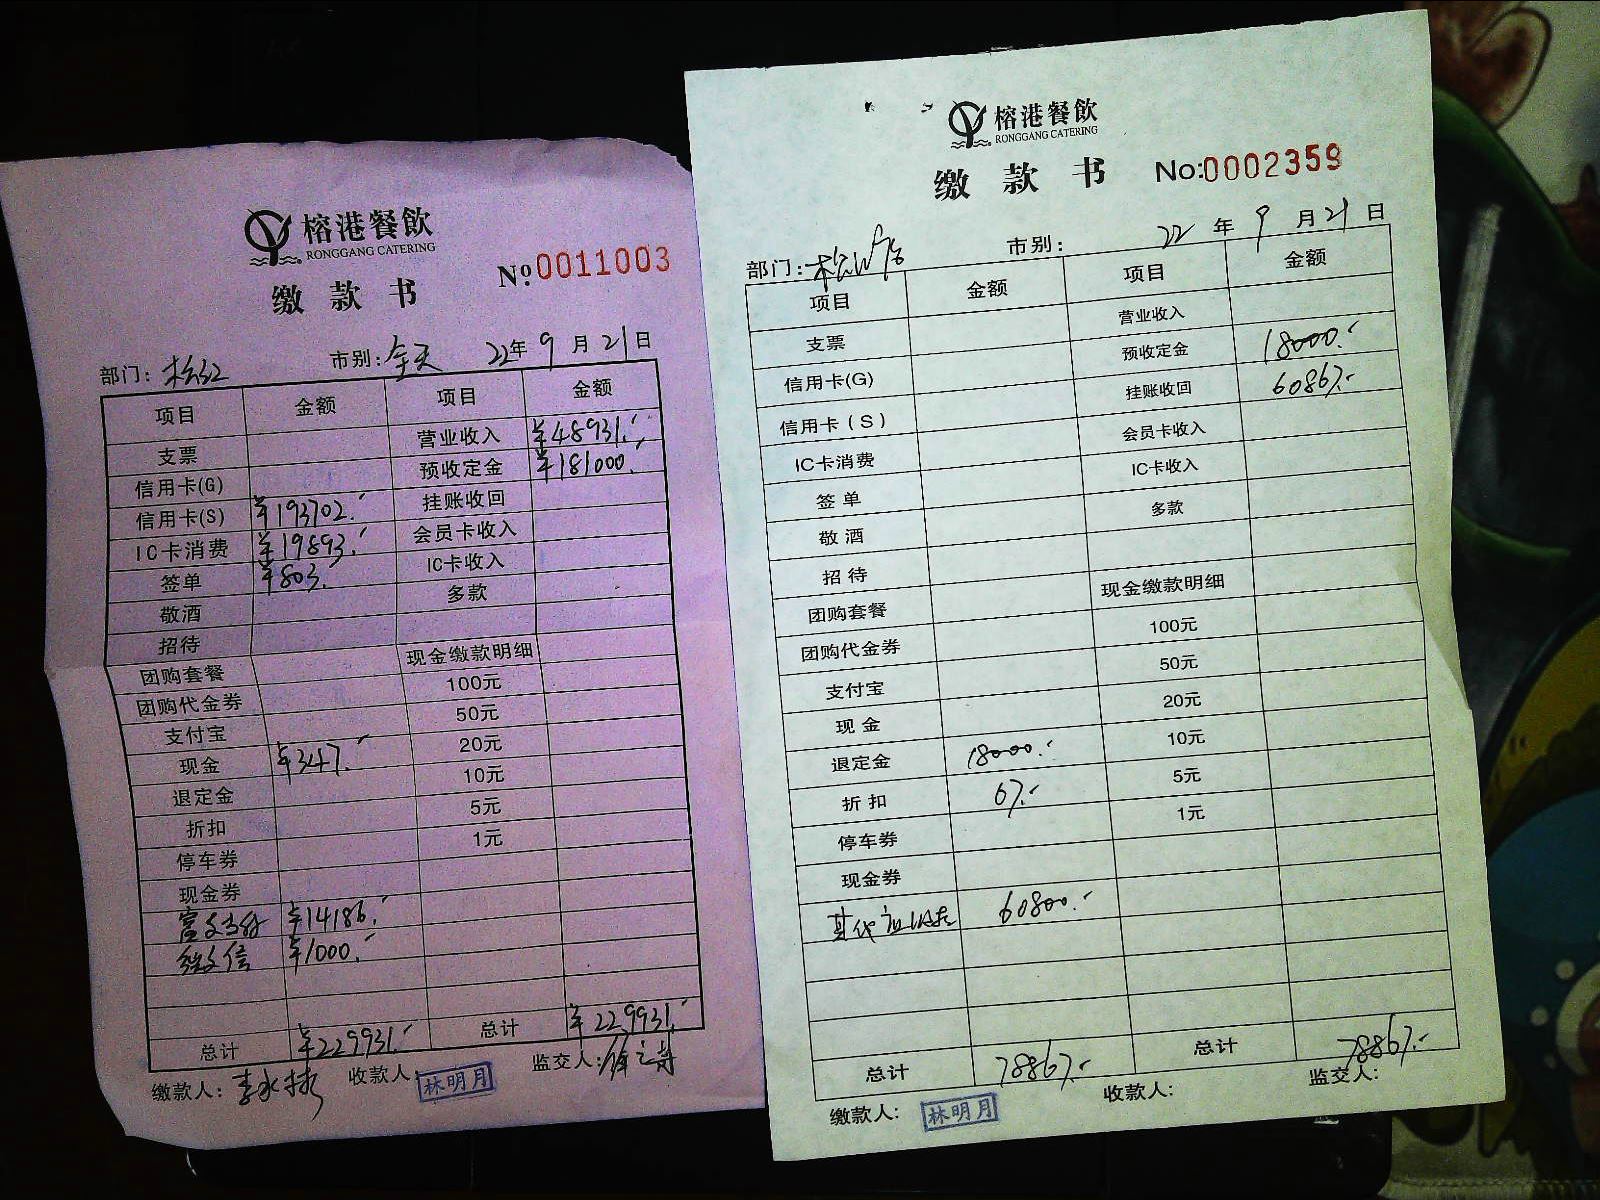 榕港餐飲
RONGGANG CATERING
缴款书
No.0011003
部门: 市别:全天 22年9月21日
项目 金额 项目 金额
支票 营业收入 ¥48931.-
信用卡(G) 预收定金 ¥181000.-
信用卡(S) ¥193702.- 挂账收回
IC卡消费 ¥19893.- 会员卡收入
签单 ¥803.- IC卡收入
敬酒 多款
招待
团购套餐 现金缴款明细
团购代金券 100元
支付宝 50元
现金 ¥347.- 20元
退定金 10元
折扣 5元
停车券 1元
现金券
¥14186.-
¥1000.-
总计 ¥229931.- 总计 ¥229931.-
缴款人: 收款人: 林明月 监交人:
榕港餐飲
RONGGANG CATERING
缴款书 No:0002359
部门: 市别: 22年9月21日
项目 金额 项目 金额
支票 营业收入
信用卡(G) 预收定金 18000.-
信用卡(S) 挂账收回 60867.-
IC卡消费 会员卡收入
签单 IC卡收入
敬酒 多款
招待
团购套餐 现金缴款明细
团购代金券 100元
支付宝 50元
现金 20元
退定金 18000.- 10元
折扣 67.- 5元
停车券 1元
现金券
其代 60800.-
总计 78867.- 总计 78867.-
缴款人: 林明月 收款人: 监交人: